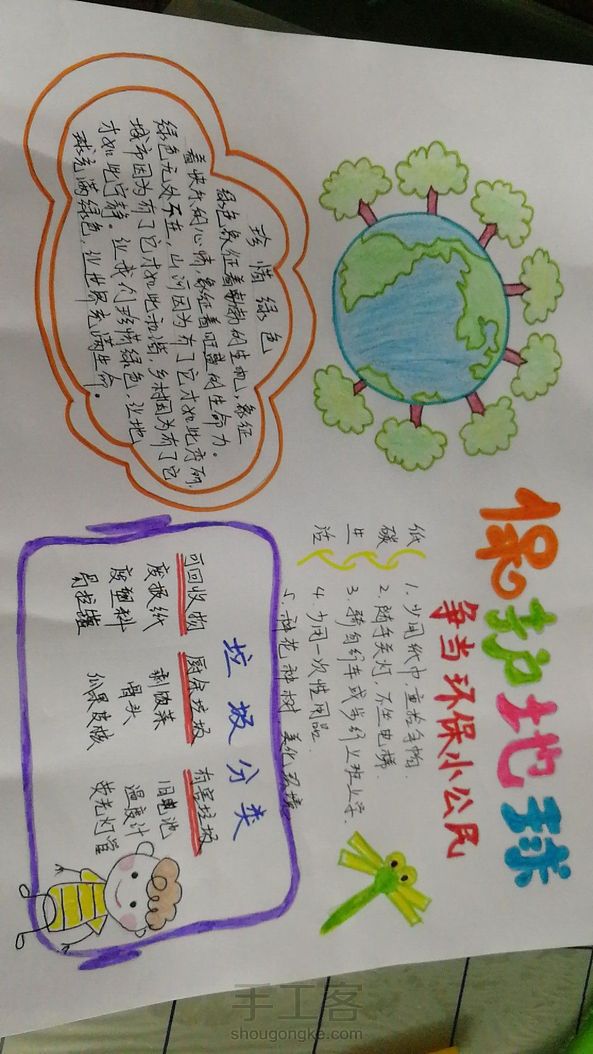 保护地球
争当环保小公民
珍惜绿色
绿色象征着勃勃的生机,象征
着快乐的心情,象征着旺盛的生命力。
绿色无处不在,山河因为有了它才如此秀丽,
城市因为有了它才如此和谐,乡村因为有了它
才如此宁静。让我们珍惜绿色,让地
球充满绿色,让世界充满生命。
低碳生活
1.少用纸巾 重拾手帕.
2.随手关灯 不坐电梯.
3.骑自行车或步行上班上学.
4.少用一次性用品.
5.种花种树 美化环境
垃圾分类
可回收物 厨余垃圾 有害垃圾
废报纸 剩饭菜 旧电池
废塑料 骨头 温度计
易拉罐 瓜果皮核 荧光灯管
手工客
shougongke.com